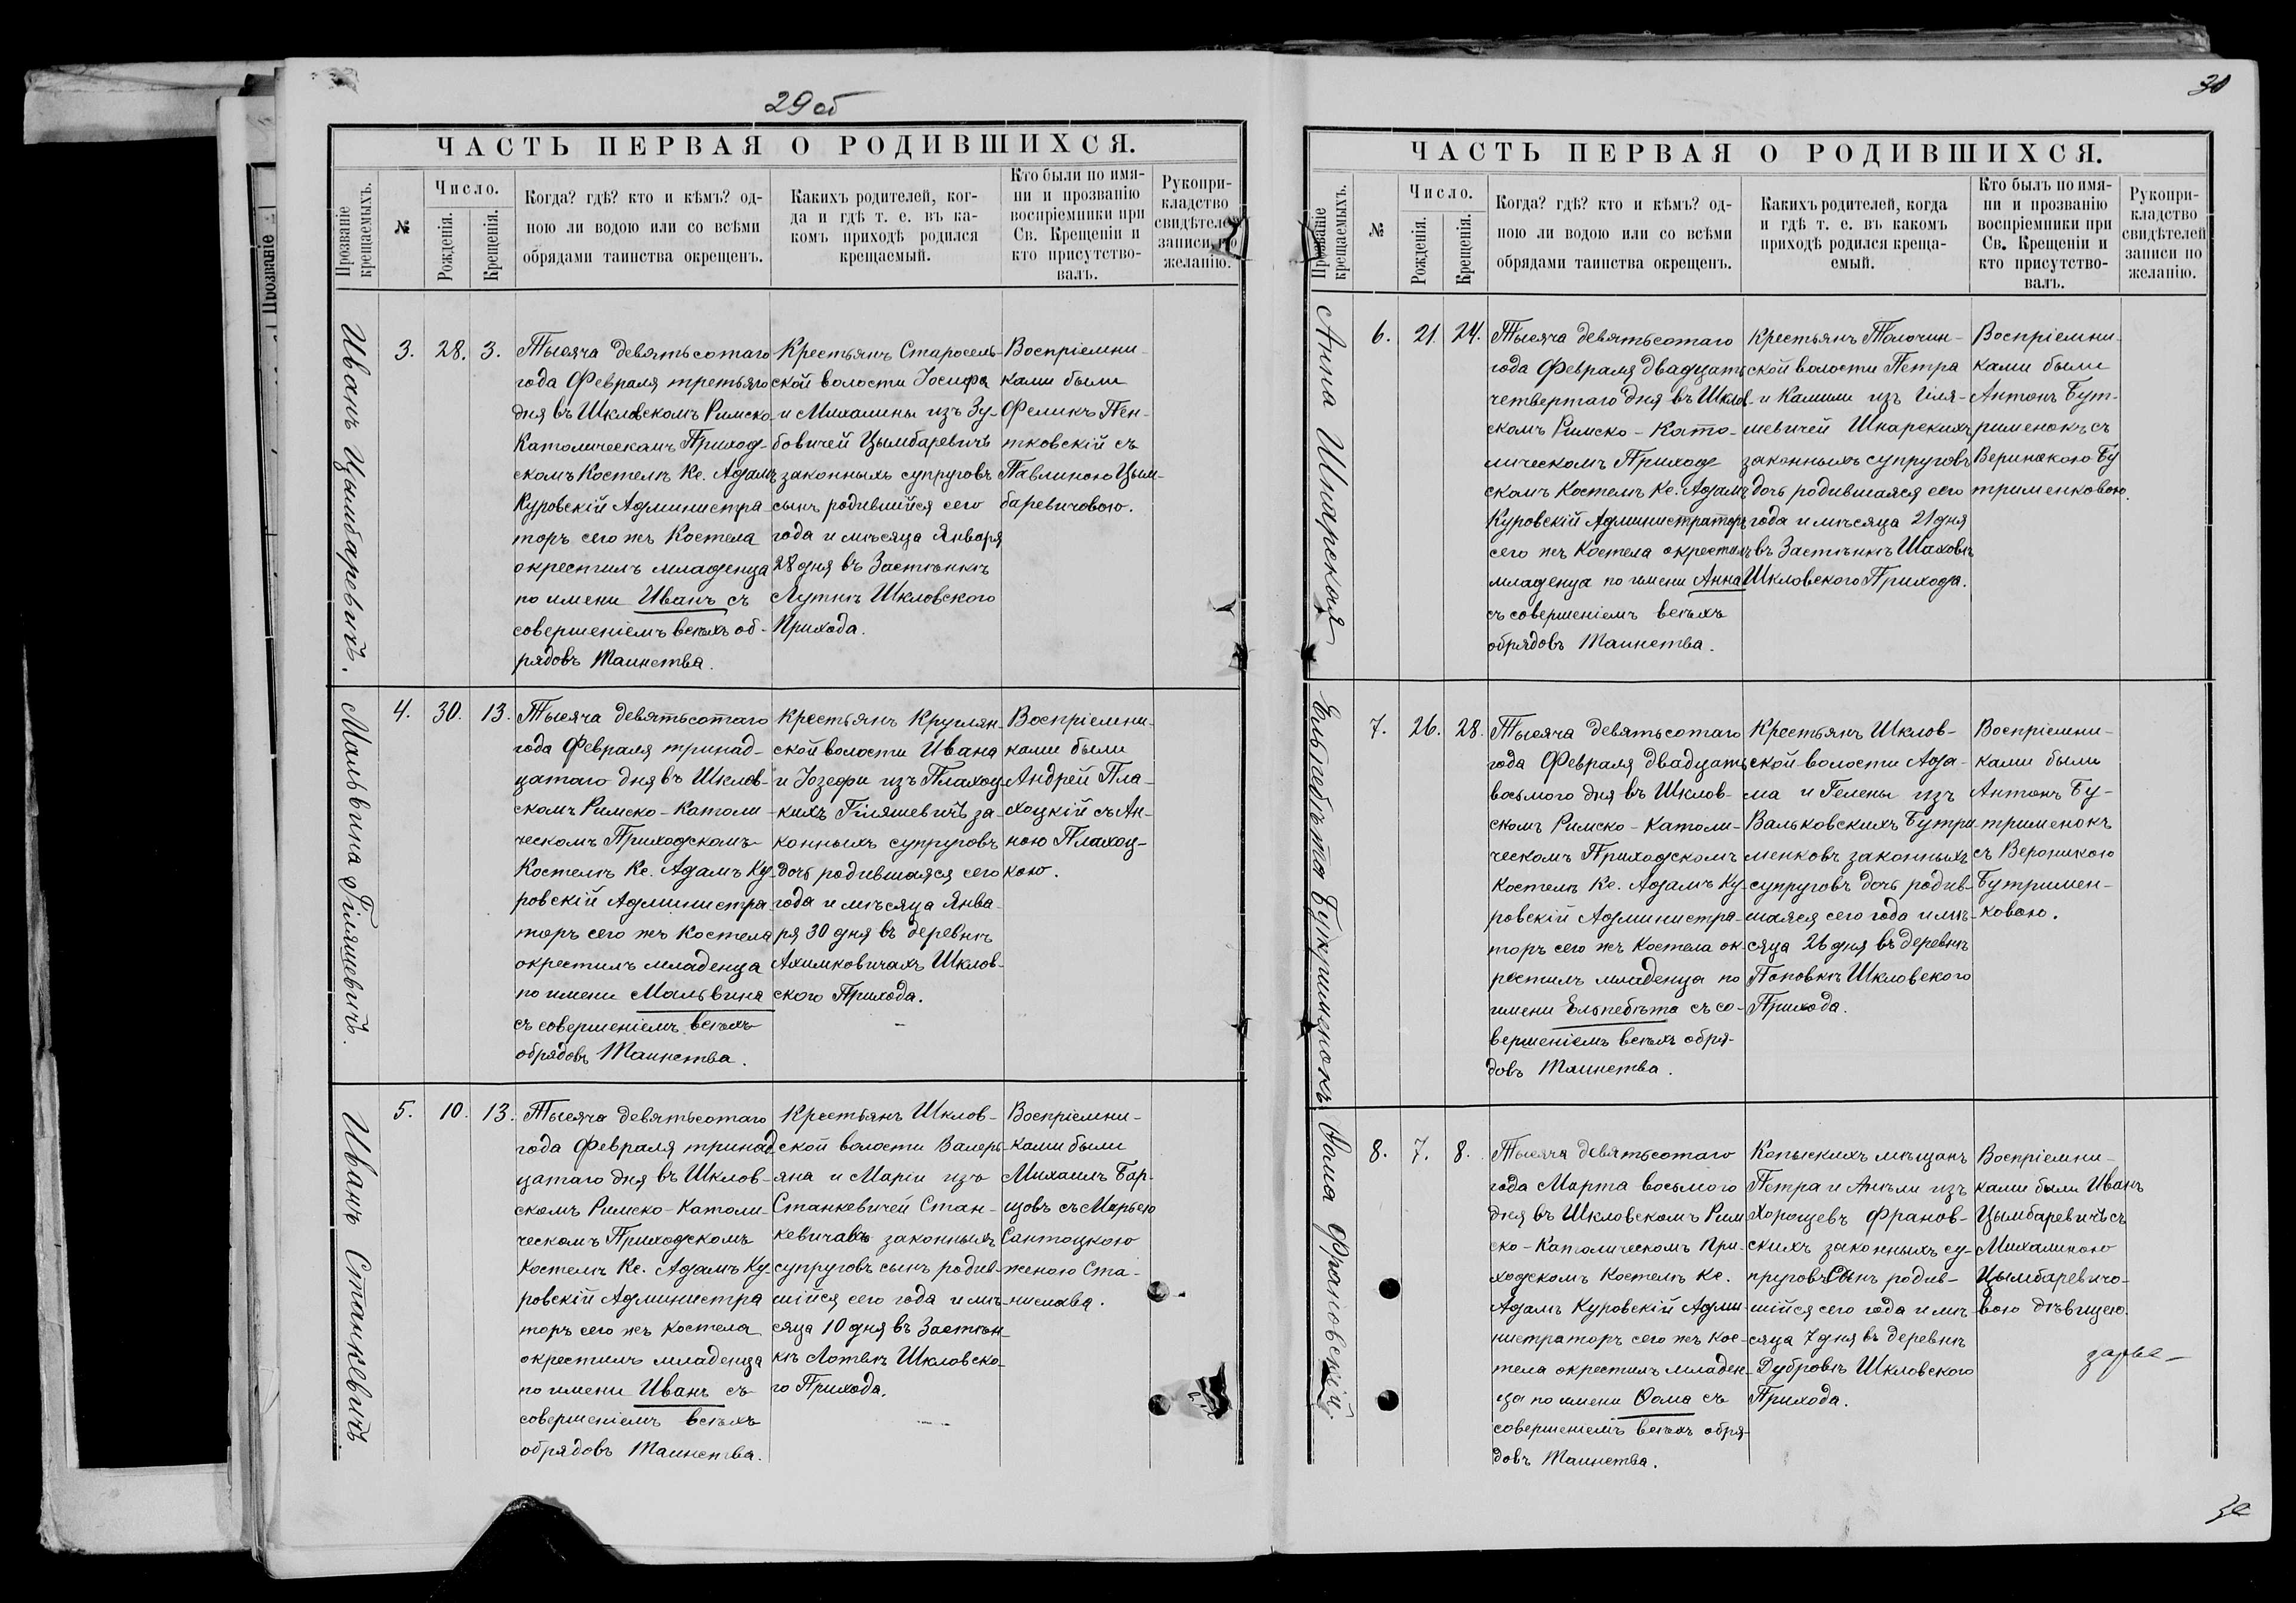 29 об
ЧАСТЬ ПЕРВАЯ О РОДИВШИХСЯ.
Прозваніе
крещаемыхъ.
№
Число.
Рожденія.
Крещенія.
Когда? гдѣ? кто и кѣмъ? од-
ною ли водою или со всѣми
обрядами таинства окрещенъ.
Какихъ родителей, ког-
да и гдѣ т. е. въ ка-
комъ приходѣ родился
крещаемый.
Кто были по имя-
ни и прозванію
воспріемники при
Св. Крещеніи и
кто присутство-
валъ.
Рукопри-
кладство
свидѣтелей
записи по
желанію.
Иванъ Цымбаревичъ.
3.
28.
3.
Тысяча девятьсотаго
года Февраля третьяго
дня въ Шкловскомъ Римско
Католическомъ Приход-
скомъ Костелѣ Кс. Адамъ
Куровскій Администра-
торъ сего жъ Костела
окрестилъ младенца
по имени Иванъ съ
совершеніемъ всѣхъ об-
рядовъ Таинства.
Крестьянъ Старосель-
ской волости Іосифа
и Михалины изъ Зу-
бовичей Цымбаревичъ
законныхъ супруговъ
сынъ родившійся сего
года и мѣсяца Января
28 дня въ Застѣнкѣ
Лутнѣ Шкловского
Прихода.
Воспріемни-
ками были
Феликъ Пен-
тковскій съ
Павлиною Цым-
баревичовою.
Мальвина Гіляшевичъ.
4.
30.
13.
Тысяча девятьсотаго
года Февраля тринад-
цатаго дня въ Шклов-
скомъ Римско-Католи-
ческомъ Приходскомъ
Костелѣ Кс. Адамъ Ку-
ровскій Администра-
торъ сего жъ Костела
окрестилъ младенца
по имени Мальвина
съ совершеніемъ всѣхъ
обрядовъ Таинства.
Крестьянъ Круглян-
ской волости Ивана
и Іозефи изъ Плахоц-
кихъ Гіляшевичъ за-
конныхъ супруговъ
дочь родившаяся сего
года и мѣсяца Янва-
ря 30 дня въ деревнѣ
Ахимковичахъ Шклов-
ского Прихода.
Воспріемни-
ками были
Андрей Пла-
хоцкій съ Ан-
ною Плахоц-
кою.
Иванъ Станкевичъ.
5.
10.
13.
Тысяча девятьсотаго
года Февраля тринад
цатаго дня въ Шклов-
скомъ Римско-Католи-
ческомъ Приходскомъ
Костелѣ Кс. Адамъ Ку-
ровскій Администра
торъ сего жъ Костела
окрестилъ младенца
по имени Иванъ съ
совершеніемъ всѣхъ
обрядовъ Таинства.
Крестьянъ Шклов-
ской волости Валерь-
яна и Маріи изъ
Станкевичей Стан-
кевичавъ законныхъ
супруговъ сынъ родив-
шійся сего года и мѣ-
сяца 10 дня въ Застѣн-
кѣ Лотвѣ Шкловско-
го Прихода.
Воспріемни-
ками были
Михаилъ Бар-
щовъ съ Марьею
Сантоцкою
женою Ста-
нислава.
30
ЧАСТЬ ПЕРВАЯ О РОДИВШИХСЯ.
Прозваніе
крещаемыхъ.
№
Число.
Рожденія.
Крещенія.
Когда? гдѣ? кто и кѣмъ? од-
ною ли водою или со всѣми
обрядами таинства окрещенъ.
Какихъ родителей, когда
и гдѣ т. е. въ какомъ
приходѣ родился креща-
емый.
Кто былъ по имя-
ни и прозванію
воспріемники при
Св. Крещеніи и
кто присутство-
валъ.
Рукопри-
кладство
свидѣтелей
записи по
желанію.
Анна Шнарская
6.
21.
24.
Тысяча девятьсотаго
года Февраля двадцать
четвертаго дня въ Шклов-
скомъ Римско-Като-
лическомъ Приход
скомъ Костелѣ Кс. Адамъ
Куровскій Администраторъ
сего жъ Костела окрестилъ
младенца по имени Анна
съ совершеніемъ всѣхъ
обрядовъ Таинства.
Крестьянъ Толочин-
ской волости Петра
и Камили изъ Гіля-
шевичей Шнарскихъ
законныхъ супруговъ
дочь родившаяся сего
года и мѣсяца 21 дня
въ Застѣнкѣ Шаховѣ
Шкловского Прихода.
Воспріемни-
ками были
Антонъ Бут-
рименокъ съ
Веринкою Бу
трименковою.
Ельжбѣта Бутрименокъ
7.
26.
28.
Тысяча девятьсотаго
года Февраля двадцать
восьмого дня въ Шклов-
скомъ Римско-Католи-
ческомъ Приходскомъ
Костелѣ Кс. Адамъ Ку-
ровскій Администра-
торъ сего жъ Костела ок-
рестилъ младенца по
имени Ельжбѣта съ со-
вершеніемъ всѣхъ обря-
довъ Таинства.
Крестьянъ Шклов-
ской волости Ада-
ма и Гелены изъ
Вальковскихъ Бутри-
менковъ законныхъ
супруговъ дочь родив-
шаяся сего года и мѣ-
сяца 26 дня въ деревнѣ
Поповкѣ Шкловского
Прихода.
Воспріемни-
ками были
Антонъ Бу-
трименокъ
съ Вероникою
Бутримен-
ковою.
Ѳома Франовскій.
8.
7.
8.
Тысяча девятьсотаго
года Марта восьмого
дня въ Шкловскомъ Рим
ско-Католическомъ При-
ходскомъ Костелѣ Кс.
Адамъ Куровскій Адми-
нистраторъ сего жъ Кос-
тела окрестилъ младен-
ца по имени Ѳома съ
совершеніемъ всѣхъ обря-
довъ Таинства.
Копыскихъ мѣщанъ
Петра и Анѣли изъ
Хорощевъ Франов-
скихъ законныхъ су-
пруговъ Сынъ родив-
шійся сего года и мѣ-
сяца 7 дня въ деревнѣ
Дубровѣ Шкловского
Прихода.
Воспріемни-
ками были Иванъ
Цымбаревичъ съ
Михалиною
Цымбаревичо-
вою дѣвицею.